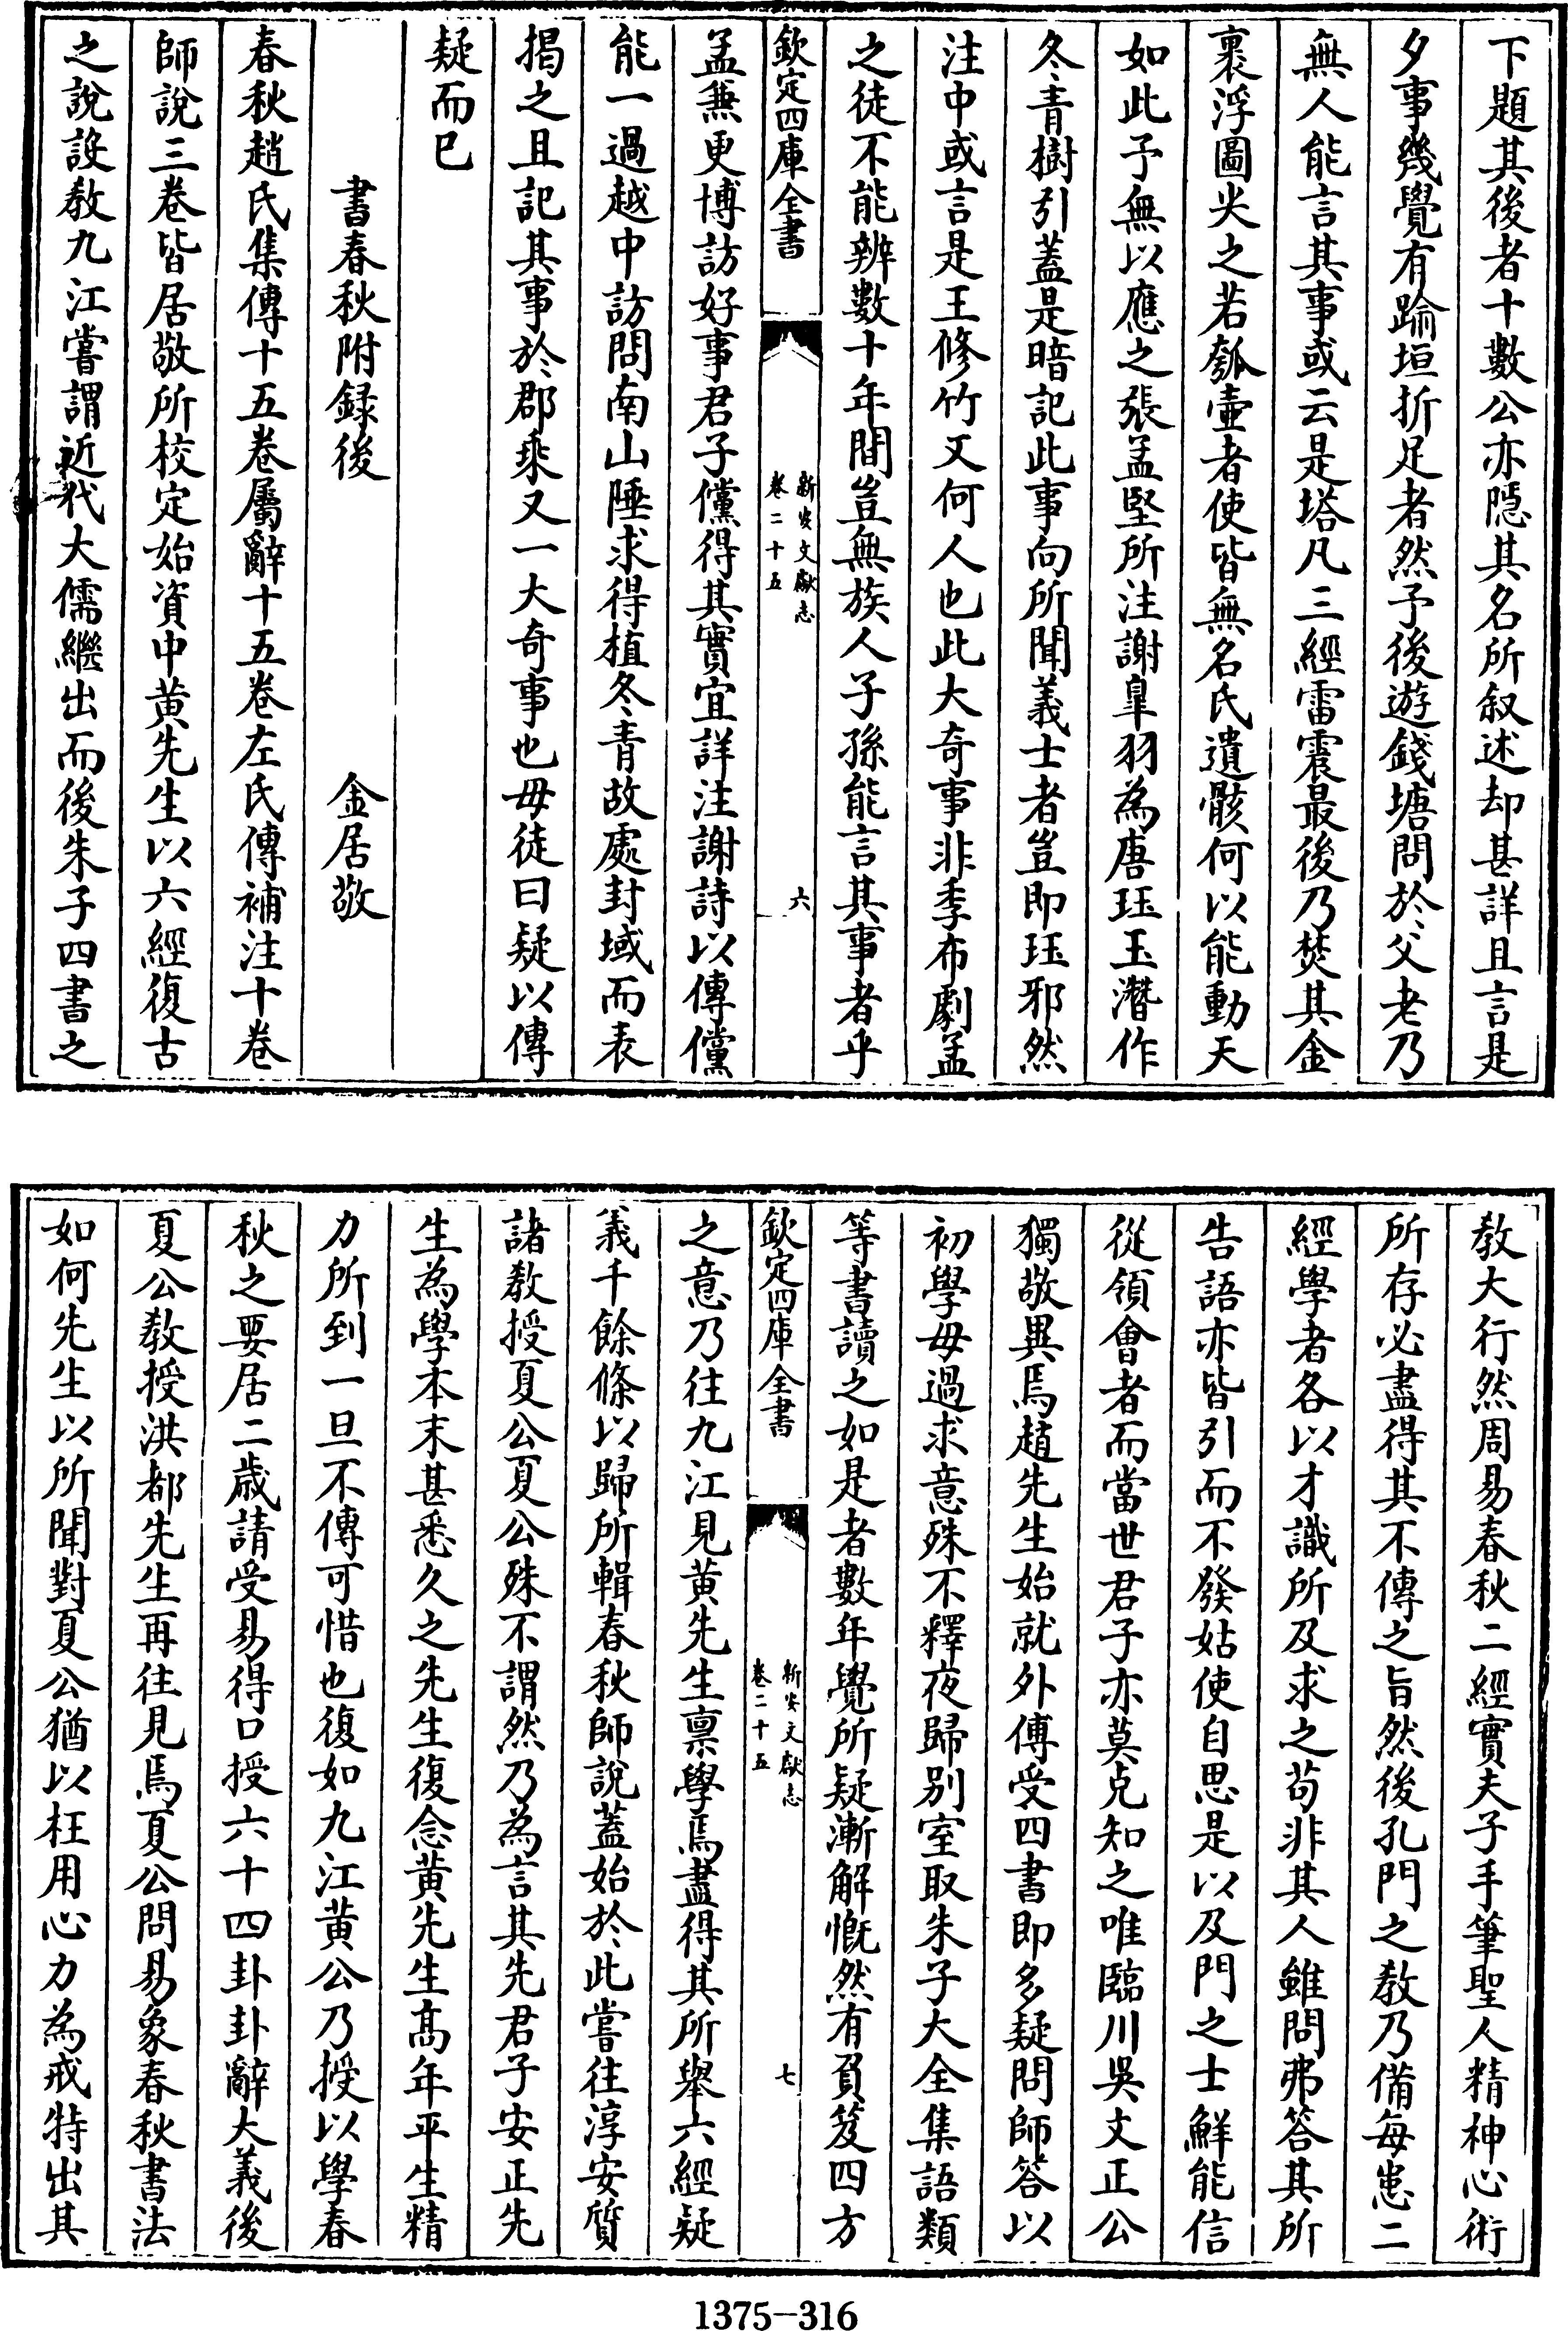 下題其後者十數公亦隱其名所叙述却甚詳且言是
夕事幾覺有踰垣折足者然予後遊錢塘問於父老乃
無人能言其事或云是塔凡三經雷震最後乃焚其金
裹浮圖尖之若瓠壷者使皆無名氏遺骸何以能動天
如此予無以應之張孟堅所注謝臯羽為唐珏玉潛作
冬青樹引蓋是暗記此事向所聞義士者豈即珏邪然
注中或言是王修竹又何人也此大奇事非季布劇孟
之徒不能辨數十年間豈無族人子孫能言其事者乎
欽定四庫全書
新安文獻志
卷二十五
六
孟兼更博訪好事君子儻得其實宜詳注謝詩以傳儻
能一過越中訪問南山陲求得植冬青故處封域而表
揭之且記其事於郡乘又一大奇事也毋徒曰疑以傳
疑而已
書春秋附録後 金居敬
春秋趙氏集傳十五卷屬辭十五卷左氏傳補注十卷
師說三卷皆居敬所校定始資中黄先生以六經復古
之說設教九江嘗謂近代大儒繼出而後朱子四書之
教大行然周易春秋二經實夫子手筆聖人精神心術
所存必盡得其不傳之旨然後孔門之教乃備每患二
經學者各以才識所及求之苟非其人雖問弗答其所
告語亦皆引而不發姑使自思是以及門之士鮮能信
從領會者而當世君子亦莫克知之唯臨川吳文正公
獨敬異焉趙先生始就外傅受四書即多疑問師答以
初學毋過求意殊不釋夜歸别室取朱子大全集語類
等書讀之如是者數年覺所疑漸解慨然有負笈四方
欽定四庫全書
新安文獻志
卷二十五
七
之意乃往九江見黄先生禀學焉盡得其所舉六經疑
義千餘條以歸所輯春秋師說蓋始於此嘗往淳安質
諸教授夏公夏公殊不謂然乃為言其先君子安正先
生為學本末甚悉久之先生復念黄先生髙年平生精
力所到一旦不傳可惜也復如九江黄公乃授以學春
秋之要居二歲請受易得口授六十四卦卦辭大義後
夏公教授洪都先生再往見焉夏公問易象春秋書法
如何先生以所聞對夏公猶以枉用心力為戒特出其
1375-316